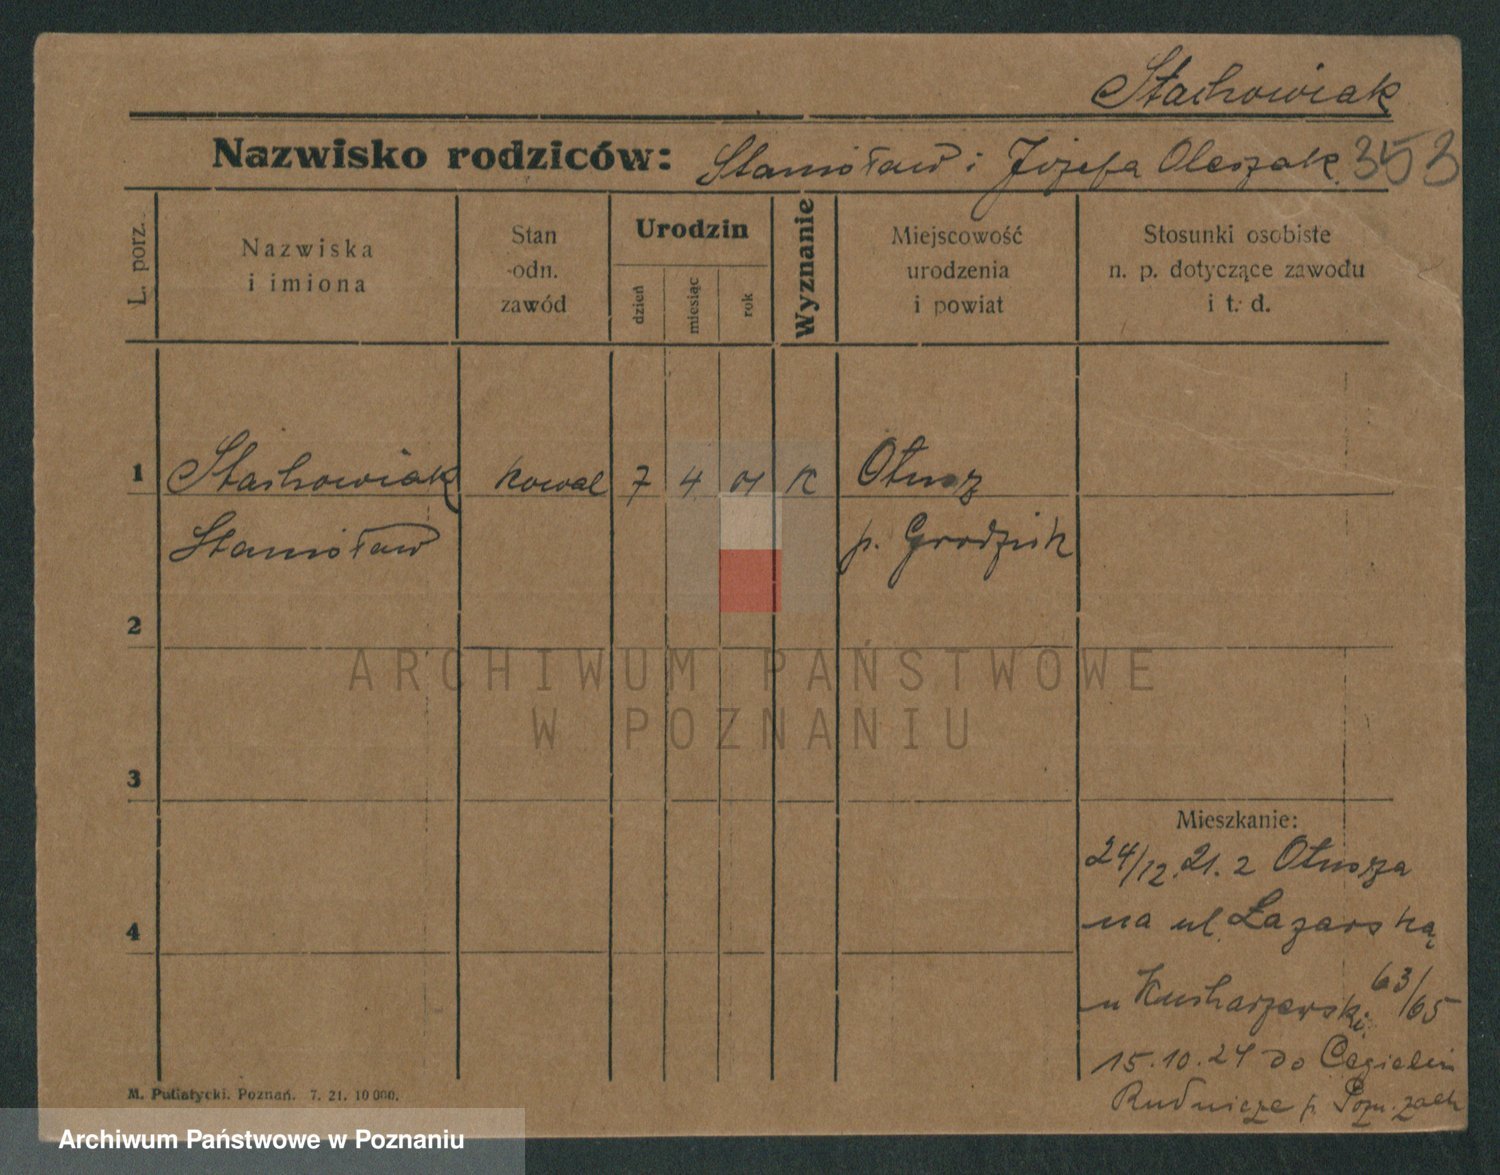 Stachowiak
Nazwisko rodziców: Stanisław i Józefa Oleszak 353
L. porz.
Nazwiska
i imiona
Stan
odn.
zawód
Urodzin
dzień
miesiąc
rok
Wyznanie
Miejscowość
urodzenia
i powiat
Stosunki osobiste
n. p. dotyczące zawodu
i t. d.
1 Stachowiak kowal 7 4 01 K Otusz
Stanisław p. Grodzisk
2
3
4
Mieszkanie:
24/12.21. z Otusza
na ul. Łazarską
u Kucharzewski 63/65
15.10.24 do
Rudnicze p. Pozn. zach
M. Putiatycki. Poznań. 7. 21. 10 000.
ARCHIWUM PAŃSTWOWE
W POZNANIU
Archiwum Państwowe w Poznaniu